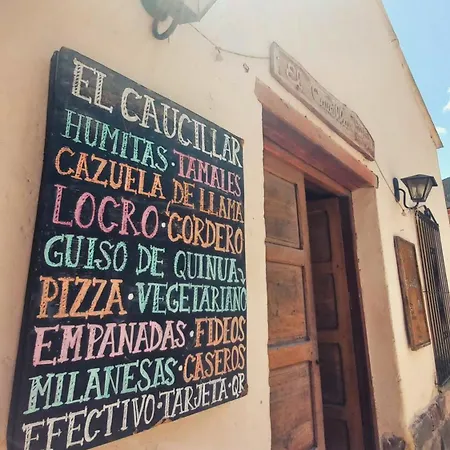 EL CAUCILLAR
HUMITAS · TAMALES
CAZUELA DE LLAMA
LOCRO · CORDERO
GUISO DE QUINUA
PIZZA · VEGETARIANO
EMPANADAS · FIDEOS
MILANESAS · CASEROS
EFECTIVO · TARJETA · QR